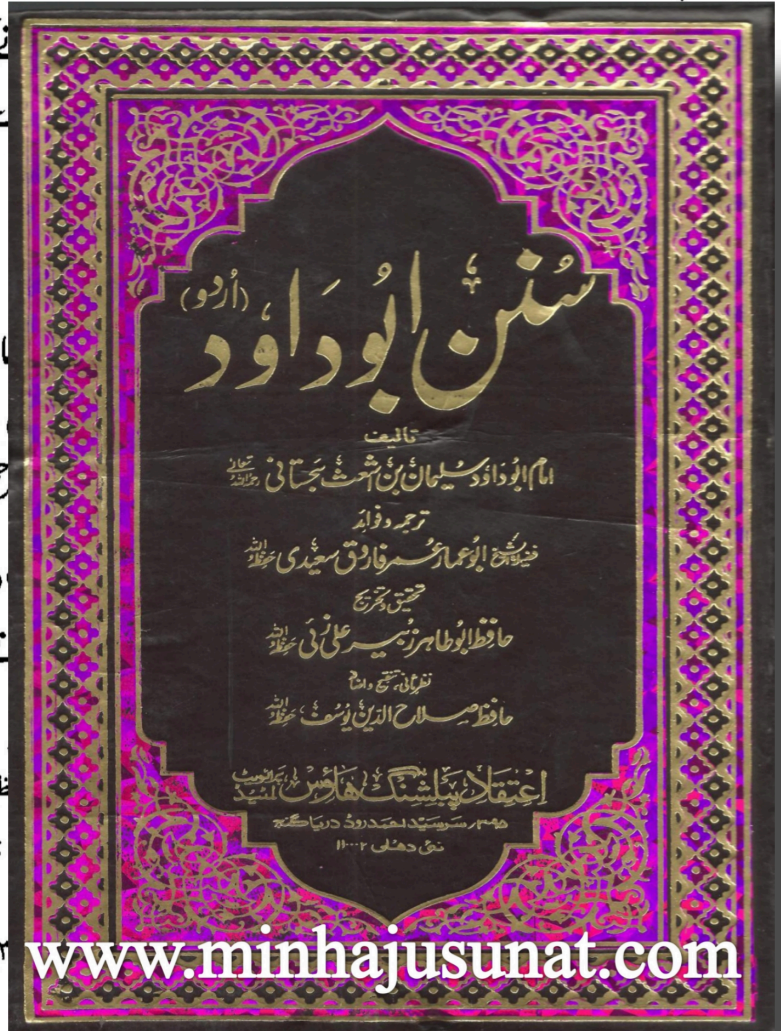 سُنن ابُو دَاوٗد (اُردو)
تالیف
امام ابوداود سلیمان بن اشعث سجستانی رحمہ اللہ تعالیٰ
ترجمہ و فوائد
فضیلۃ الشیخ ابو عمار عمر فاروق سعیدی حفظہ اللہ
تحقیق و تخریج
حافظ ابو طاہر زبیر علی زئی حفظہ اللہ
نظرثانی، تنقیح و اضافہ
حافظ صلاح الدین یوسف حفظہ اللہ
اعتقاد پبلشنگ ھاؤس پرائیویٹ لمیٹڈ
۳۰۹۵، سر سید احمد روڈ دریا گنج
نئی دھلی ۱۱۰۰۰۲
www.minhajusunat.com